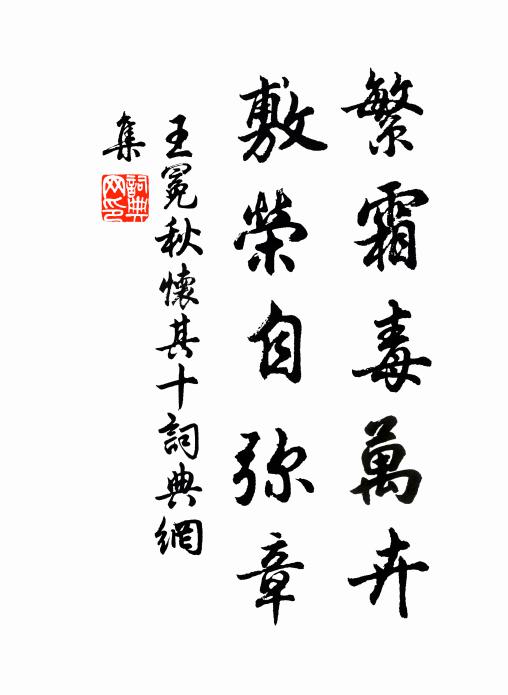 繁霜毒萬卉
敷榮自弥章
王冕秋懷其十詞典網
集
詞典网印